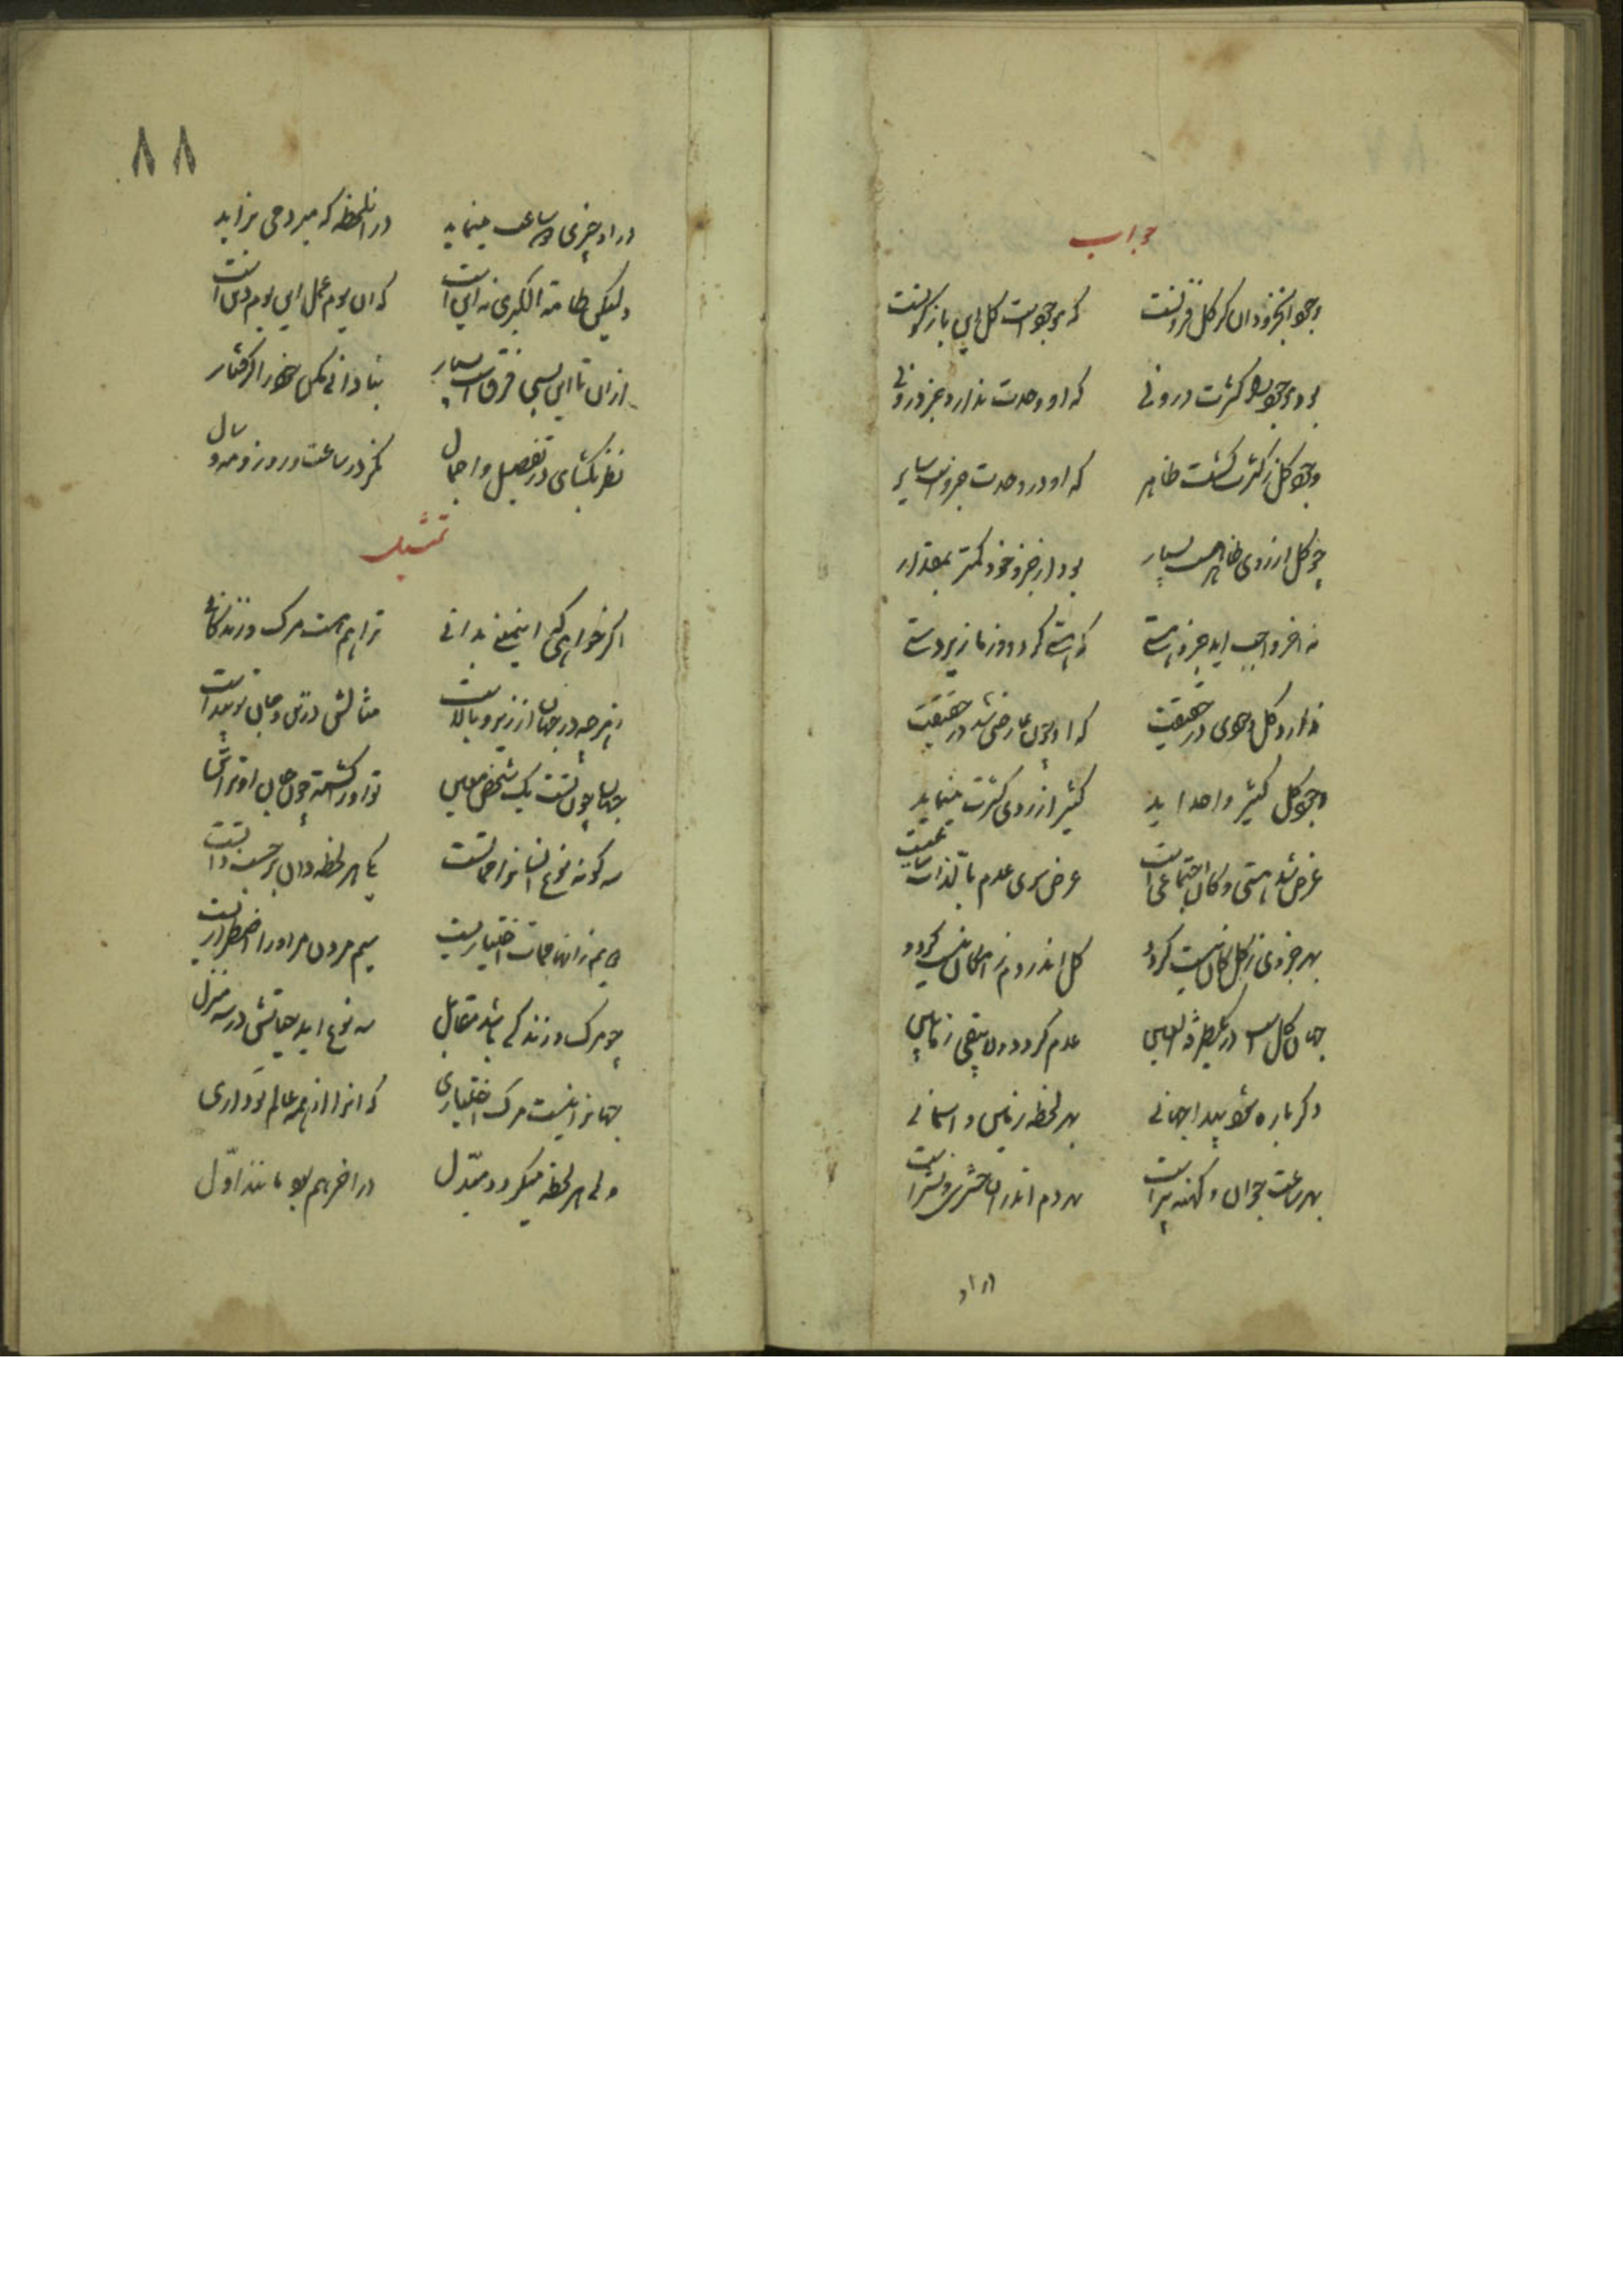 جواب
وجود آن جزو دان کز کل فزونست که موجودست کل این باژگونست
بود موجود را کثرت درونی که او وحدت ندارد جز درونی
وجود کل ز کثرت گشت ظاهر که او در وحدت جزوست سایر
چو کل از روی ظاهر هست بسیار بود از جزو خود کمتر بمقدار
نه آخر واجب آمد جزو هستی که هستی کرد او را زیردستی
ندارد کل وجودی در حقیقت که او چون عارضی شد در حقیقت
وجود کل کثیر واحد آید کثیر از روی کثرت مینماید
عرض شد هستی و کان اجتماعی است عرض سوی عدم بالذات ساعیست
بهر جزوی ز کل کان نیست گردد کل اندر دم ز امکان نیست گردد
جهان کل است در هر طرفة العین عدم گردد و لا یبقی زمانین
دگر باره شود پیدا جهانی بهر لحظه زمین و آسمانی
بهر ساعت جوان و کهنه پیر است بهر دم اندر آن حشر و نشیر است
در او
٨٨
در او چیزی دو ساعت مینپاید در آن لحظه که میرد می بزاید
ولیکن طامة الکبری نه این است که آن یوم عمل این یوم دین است
از آن تا این بسی فرق است بسیار بنادانی مکن خود را گرفتار
نظر بگشای در تفصیل و اجمال نگر در ساعت و روز و مه و سال
تمثیل
اگر خواهی که این معنی بدانی ترا هم هست مرگ و زندگانی
ز هر چه در جهان از زیر و بالاست مثالش در تن و جان تو پیداست
جهان چون تست یک شخص معین تو او را گشته چون جان او ترا تن
سه گونه نوع انسان را مماتست یکی هر لحظه وان بر حسب ذاتست
دویم زانها ممات اختیاریست سیم مردن مر او را اضطراریست
چو مرگ و زندگی باشد مقابل سه نوع آید حیاتش در سه منزل
جهان را نیست مرگ اختیاری که آنرا از همه عالم تو داری
ولی هر لحظه میگردد مبدل در آخر هم بود مانند اول